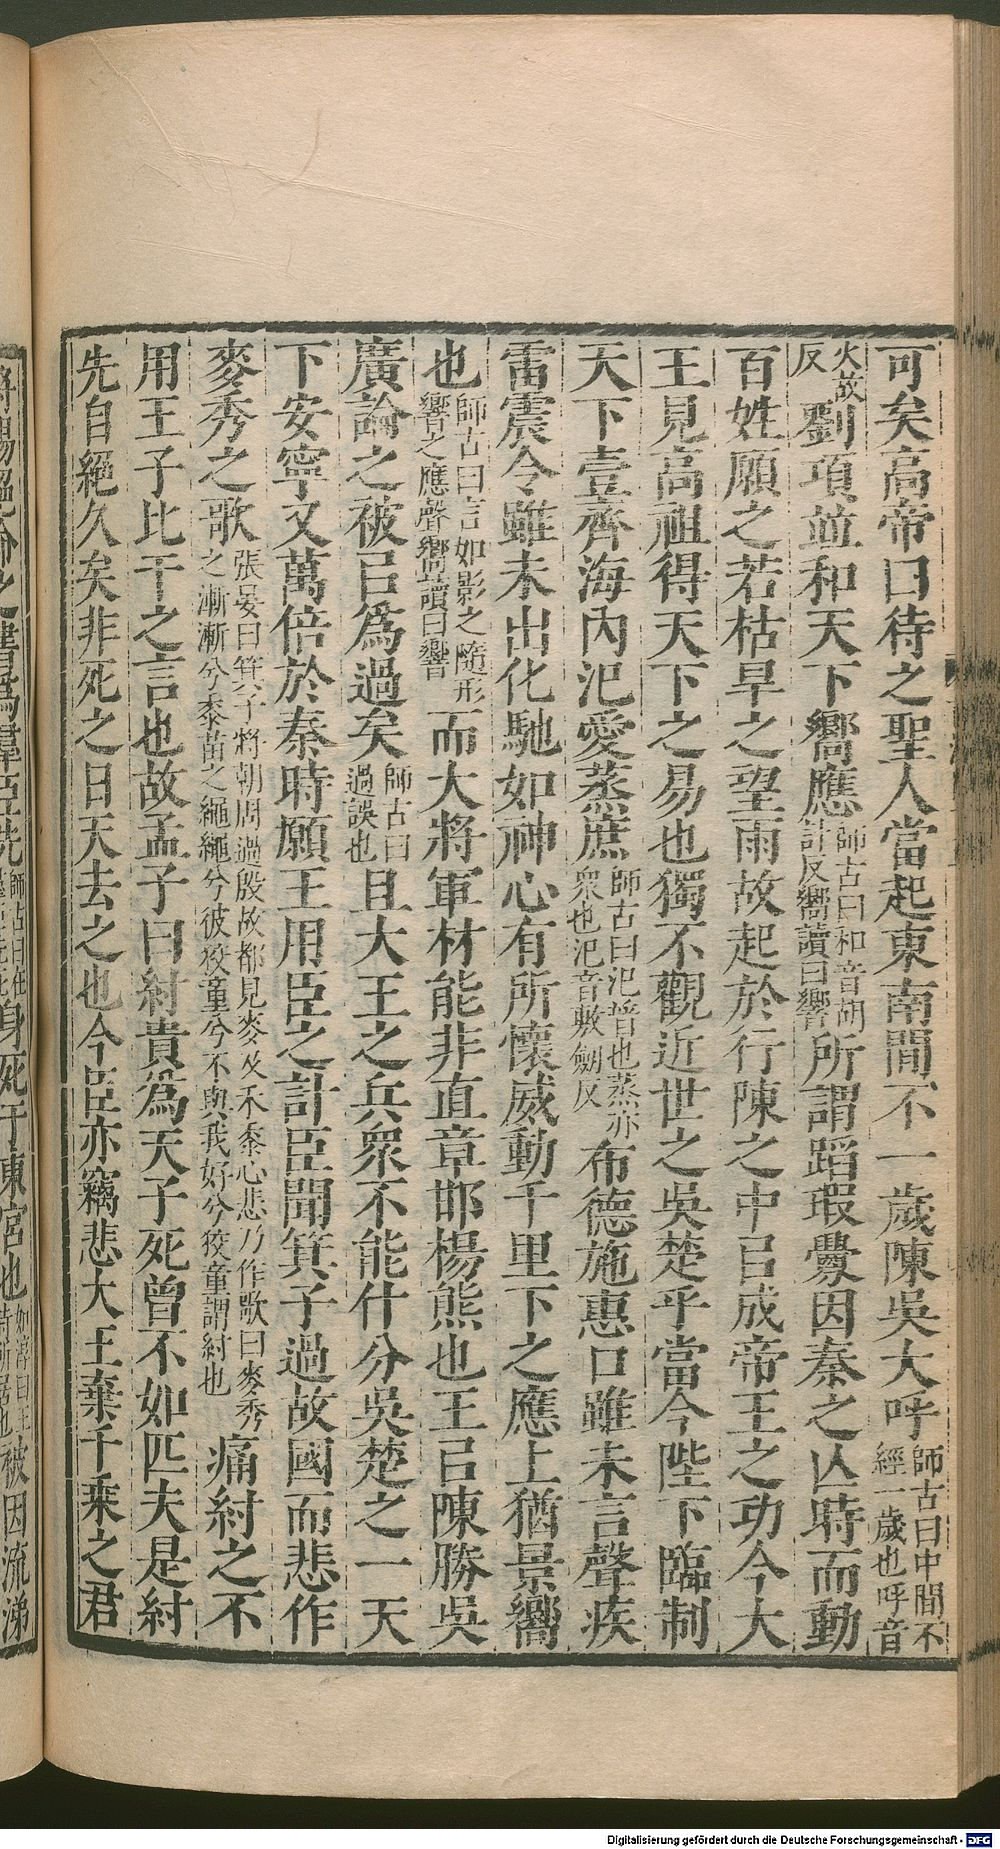 可矣高帝曰待之聖人當起東南間不一歲陳吳大呼師古曰中間不經一歲也呼音
火故反劉項並和天下嚮應師古曰和音胡計反嚮讀曰響所謂蹈瑕舋因秦之亾時而動
百姓願之若枯旱之望雨故起於行陳之中㠯成帝王之功今大
王見高祖得天下之易也獨不觀近世之吳楚乎當今陛下臨制
天下壹齊海內氾愛蒸庶師古曰氾普也蒸亦衆也氾音敷劒反布德施惠口雖未言聲疾
雷震令雖未出化馳如神心有所懷威動千里下之應上猶景嚮
也師古曰言如影之隨形響之應聲嚮讀曰響而大將軍材能非直章邯楊熊也王㠯陳勝吳
廣論之被㠯爲過矣師古曰過誤也且大王之兵衆不能什分吳楚之一天
下安寧又萬倍於秦時願王用臣之計臣聞箕子過故國而悲作
麥秀之歌張晏曰箕子將朝周過殷故都見麥及禾黍心悲乃作歌曰麥秀之漸漸兮黍苗之繩繩兮彼狡童兮不與我好兮狡童謂紂也痛紂之不
用王子比干之言也故孟子曰紂貴爲天子死曾不如匹夫是紂
先自絕久矣非死之日天去之也今臣亦竊悲大王棄千乗之君
身死于東宮也
被因流涕
Digitalisierung gefördert durch die Deutsche Forschungsgemeinschaft - DFG